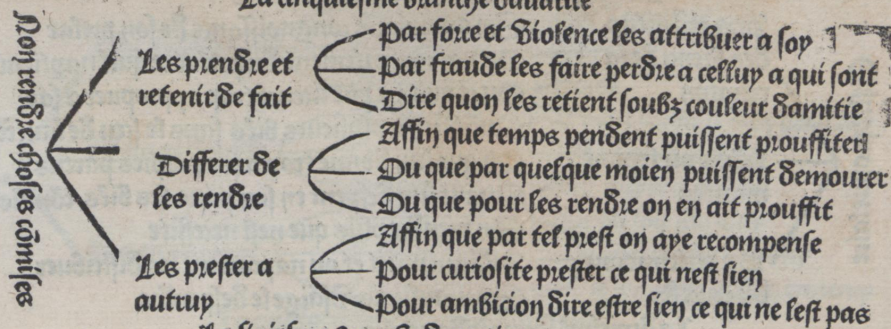 La cinquiesme branche davarice
Non rendre choses cōmises
Les prendre et
retenir de fait
Par force et violence les attribuer a soy
Par fraude les faire perdre a celluy a qui sont
Dire quon les retient soubz couleur damitie
Differer de
les rendre
Affin que temps pendent puissent prouffiter
Ou que par quelque moien puissent demourer
Ou que pour les rendre on en ait prouffit
Les prester a
autruy
Affin que par tel prest on aye recompense
Pour curiosite prester ce qui nest sien
Pour ambicion dire estre sien ce qui ne lest pas